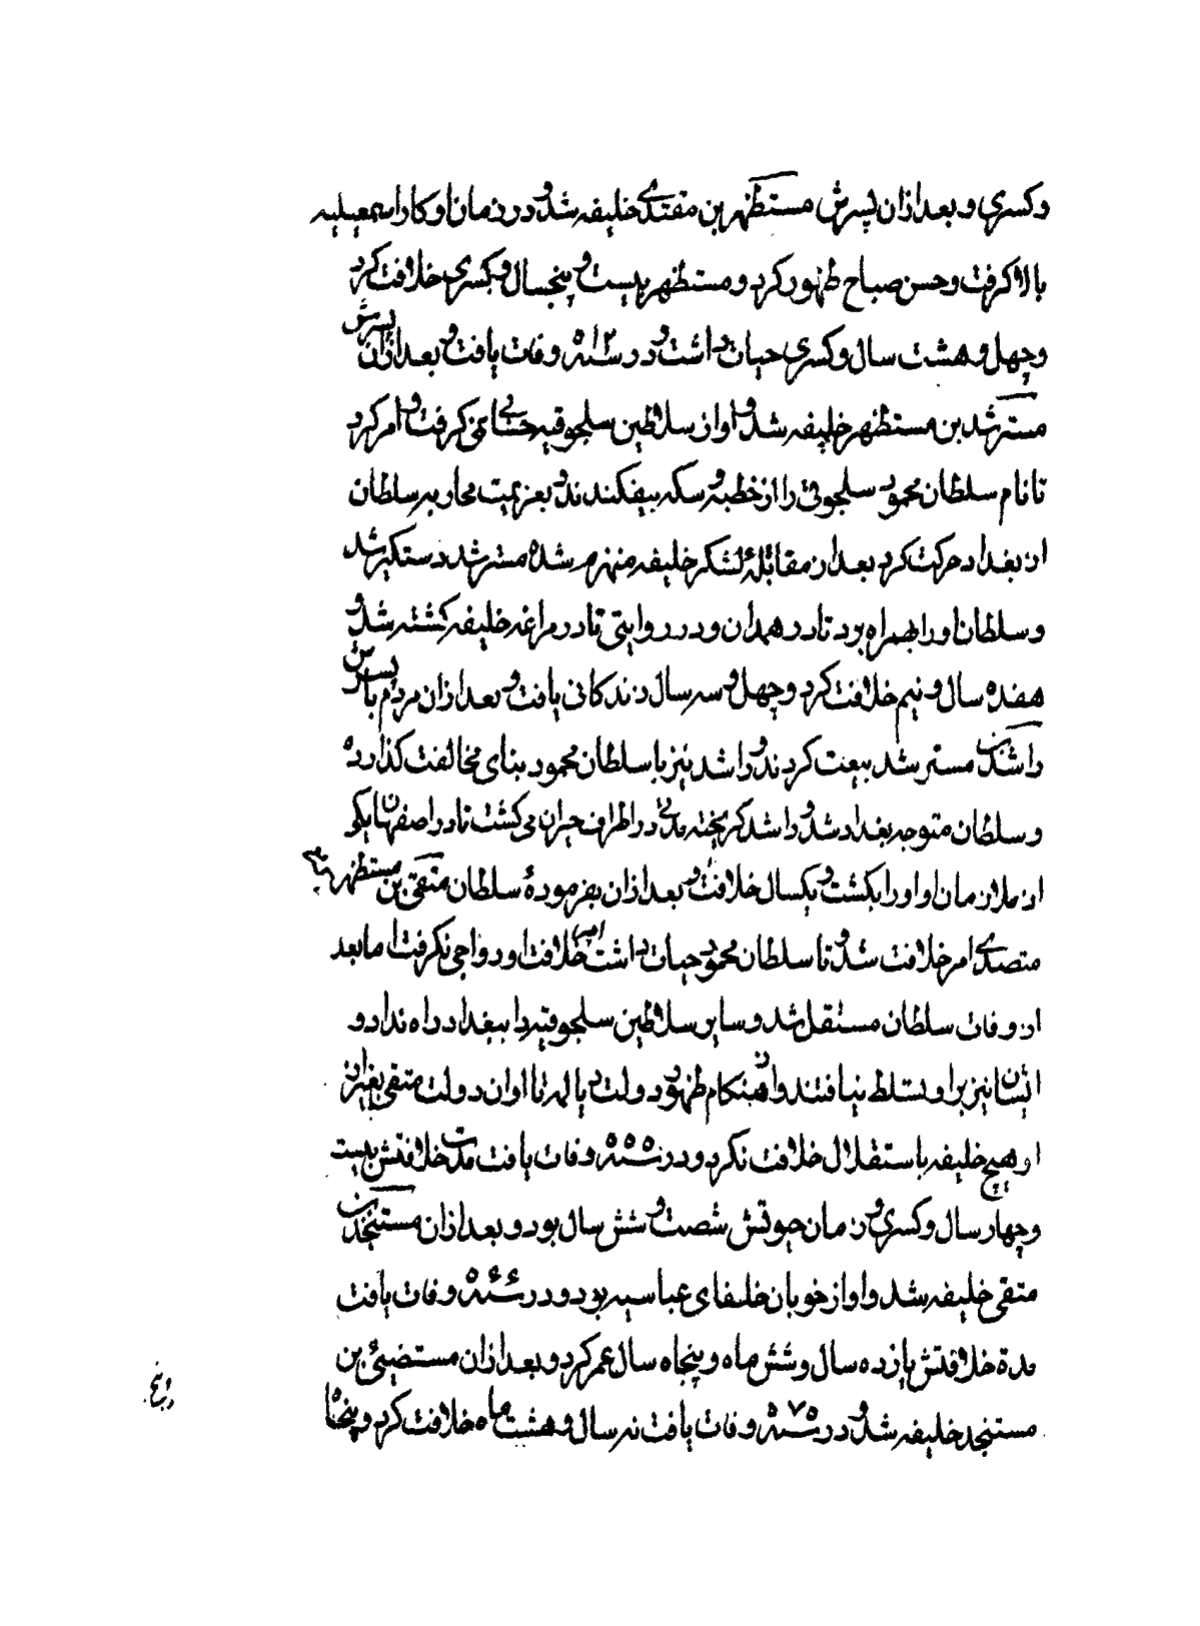 و کسری و بعد ازان پسرش مستظهر بن مقتدی خلیفه شد و در زمان او کار اسمعیلیه
بالا کرفت و حسن صباح ظهور کرد و مستظهر بیست و پنجسال و کسری خلافت کرد
و چهل و هشت سال و کسری حیات داشت و در سنه ۵۱۲ وفات یافت و بعد ازان پسرش
مسترشد بن مستظهر خلیفه شد و او از سلاطین سلجوقیه حسابی نمی کرفت و امر کرد
تا نام سلطان محمود سلجوقی را از خطبه و سکه بیفکندند و بعزیمت محاربه سلطان
از بغداد حرکت کرد بعد از مقاتله لشکر خلیفه منهزم شده مسترشد دستکیر شد
و سلطان او را بهمراه برد تا در همدان و در روایتی تا در مراغه خلیفه کشته شد و
هفده سال و نیم خلافت کرد و چهل و سه سال زندکانی یافت و بعد ازان مردم با پسرش
راشد بن مسترشد بیعت کردند و راشد نیز با سلطان محمود بنای مخالفت کذارده
و سلطان متوجه بغداد شد و راشد کریخته مدتی در اطراف حیران می کشت تا در اصفهان یکی
از ملازمان او او را بکشت و یکسال خلافت و بعد ازان بفرمودهٔ سلطان متقی بن مستظهر
متصدی امر خلافت شد و تا سلطان محمود حیات داشت امر خلافت او رواجی نکرفت اما بعد
از وفات سلطان مستقل شد و سایر سلاطین سلجوقیه را ببغداد راه نداد و
ایشان نیز بر او تسلط نیافتند و از هنکام ظهور دولت دیالمه تا اوان دولت متقی بغیر از
او هیچ خلیفه باستقلال خلافت نکرد و در سنه ۵۵۵ وفات یافت مدت خلافتش بیست
و چهار سال و کسری و زمان حیوتش شصت و شش سال بود و بعد ازان مستنجد بن
متقی خلیفه شد و او از خوبان خلفای عباسیه بود و در سنه ۵۶۶ وفات یافت
مدة خلافتش یازده سال و شش ماه و پنجاه سال عمر کرد و بعد ازان مستضیئ بن
مستنجد خلیفه شد و در سنه ۵۷۵ وفات یافت نه سال و هشت ماه خلافت کرد و پنجاه
و پنج